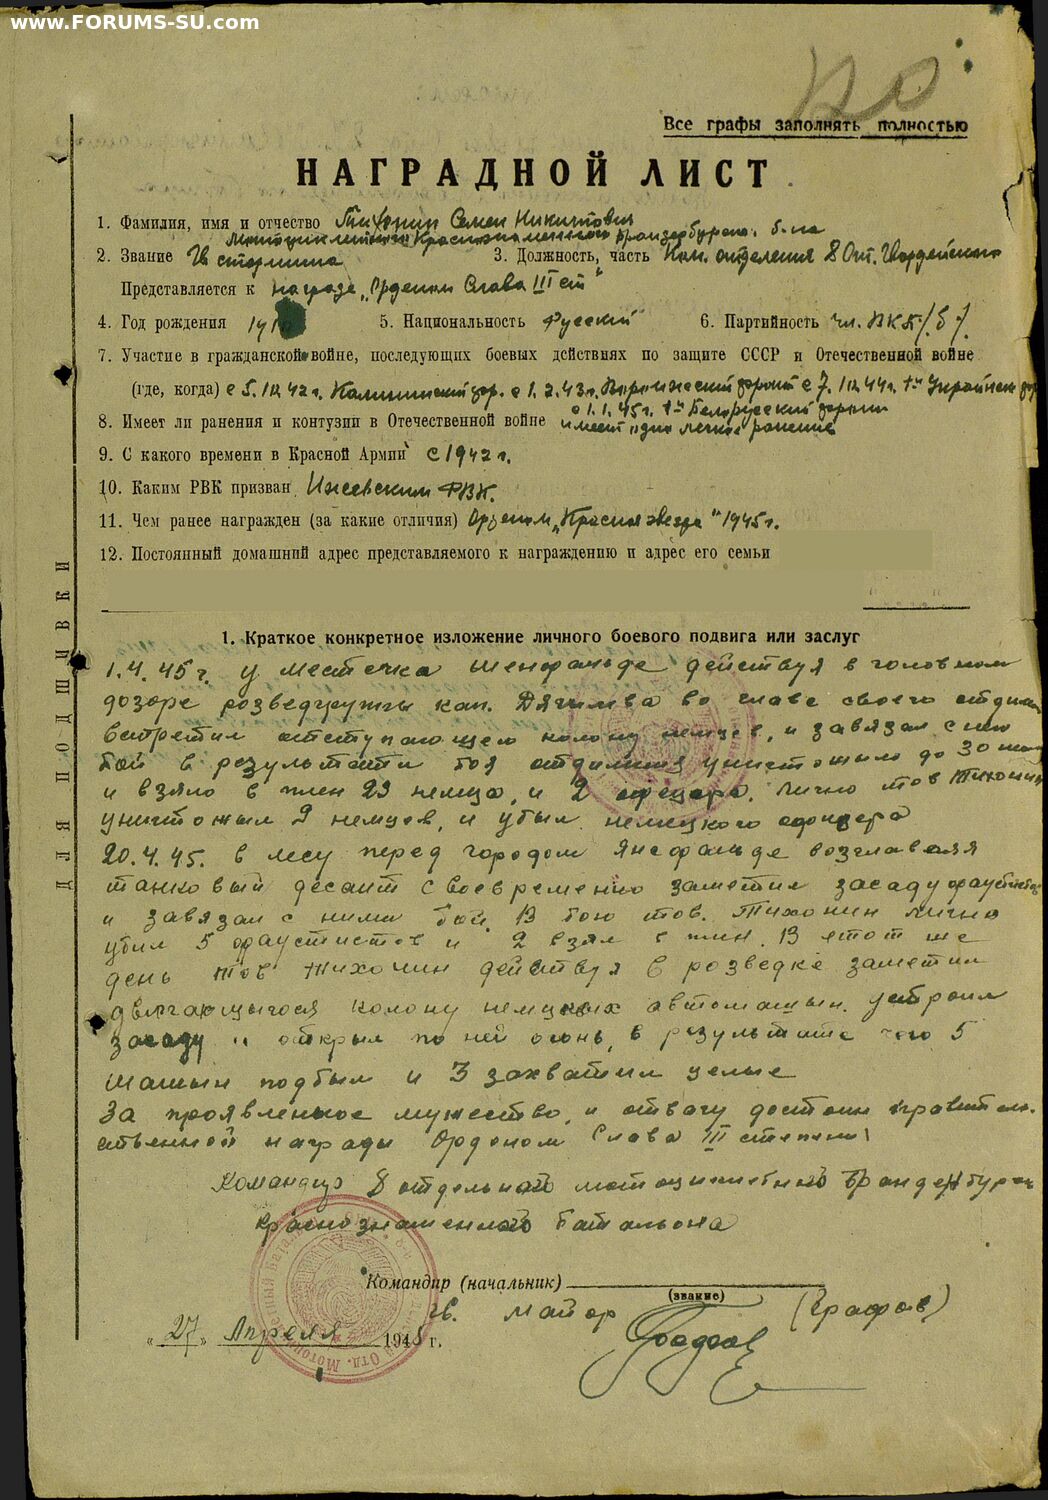 www.FORUMS-SU.com
Все графы заполнять полностью
НАГРАДНОЙ ЛИСТ
1. Фамилия, имя и отчество Тихонин Семен Никитович
Мотоциклетного Краснознаменного Бранденбургс. б-на
2. Звание Гв старшина 3. Должность, часть Ком. отделения 8 Отд. Гвардейского
Представляется к награде „Орденом Слава III ст"
4. Год рождения 5. Национальность Русский 6. Партийность чл. ВКП/б/
7. Участие в гражданской войне, последующих боевых действиях по защите СССР и Отечественной войне
(где, когда) с 5.10.42г. Калининский фр. с 1.2.43г. Воронежский фронт с 7.10.44г. 1й Украинск фр
с 1.1.45г. 1й Белорусский фронт
8. Имеет ли ранения и контузии в Отечественной войне имеет одно легкое ранение
9. С какого времени в Красной Армии с 1942г.
10. Каким РВК призван Ижевским РВК.
11. Чем ранее награжден (за какие отличия) Орденом „Красная звезда" 1945г.
12. Постоянный домашний адрес представляемого к награждению и адрес его семьи
ДЛЯ ПОДШИВКИ
1. Краткое конкретное изложение личного боевого подвига или заслуг
1.4.45г. у местечка Шенфальде действуя в головном
дозоре розведгрупы кап. во главе своего отделен
встретил отступающею колону немцев, и завязал с нею
бой в результати боя отделения уничтожило до 30 нем
и взяло в плен 23 немца, и 2 офецера. Лично тов Тихонин
уничтожил 9 немцев, и убил немецкого офицера
20.4.45. в лесу перед городом Янсфальде возглавляя
танковый десант своевременно заметил засаду фаустистов
и завязал с ними бой. В бою тов. Тихонин лично
убил 5 фаустистов и 2 взял в плен. В етот же
день тов Тихонин действуя в розведке заметил
двигающуюся колону немцких автомашын. устроил
засаду и открыл по ней огонь, в результате чего 5
машын подбыл и 3 захватил целые
За проявленное мужество, и отвагу достоин правитель-
ственной награды Орденом Слава III степени
Командир 8 отдельной мотоциклетный Бранденбургс
краснознаменного батальона
Командир (начальник)
(звание)
Гв. майор (Графов)
„27" Апреля 1945 г.